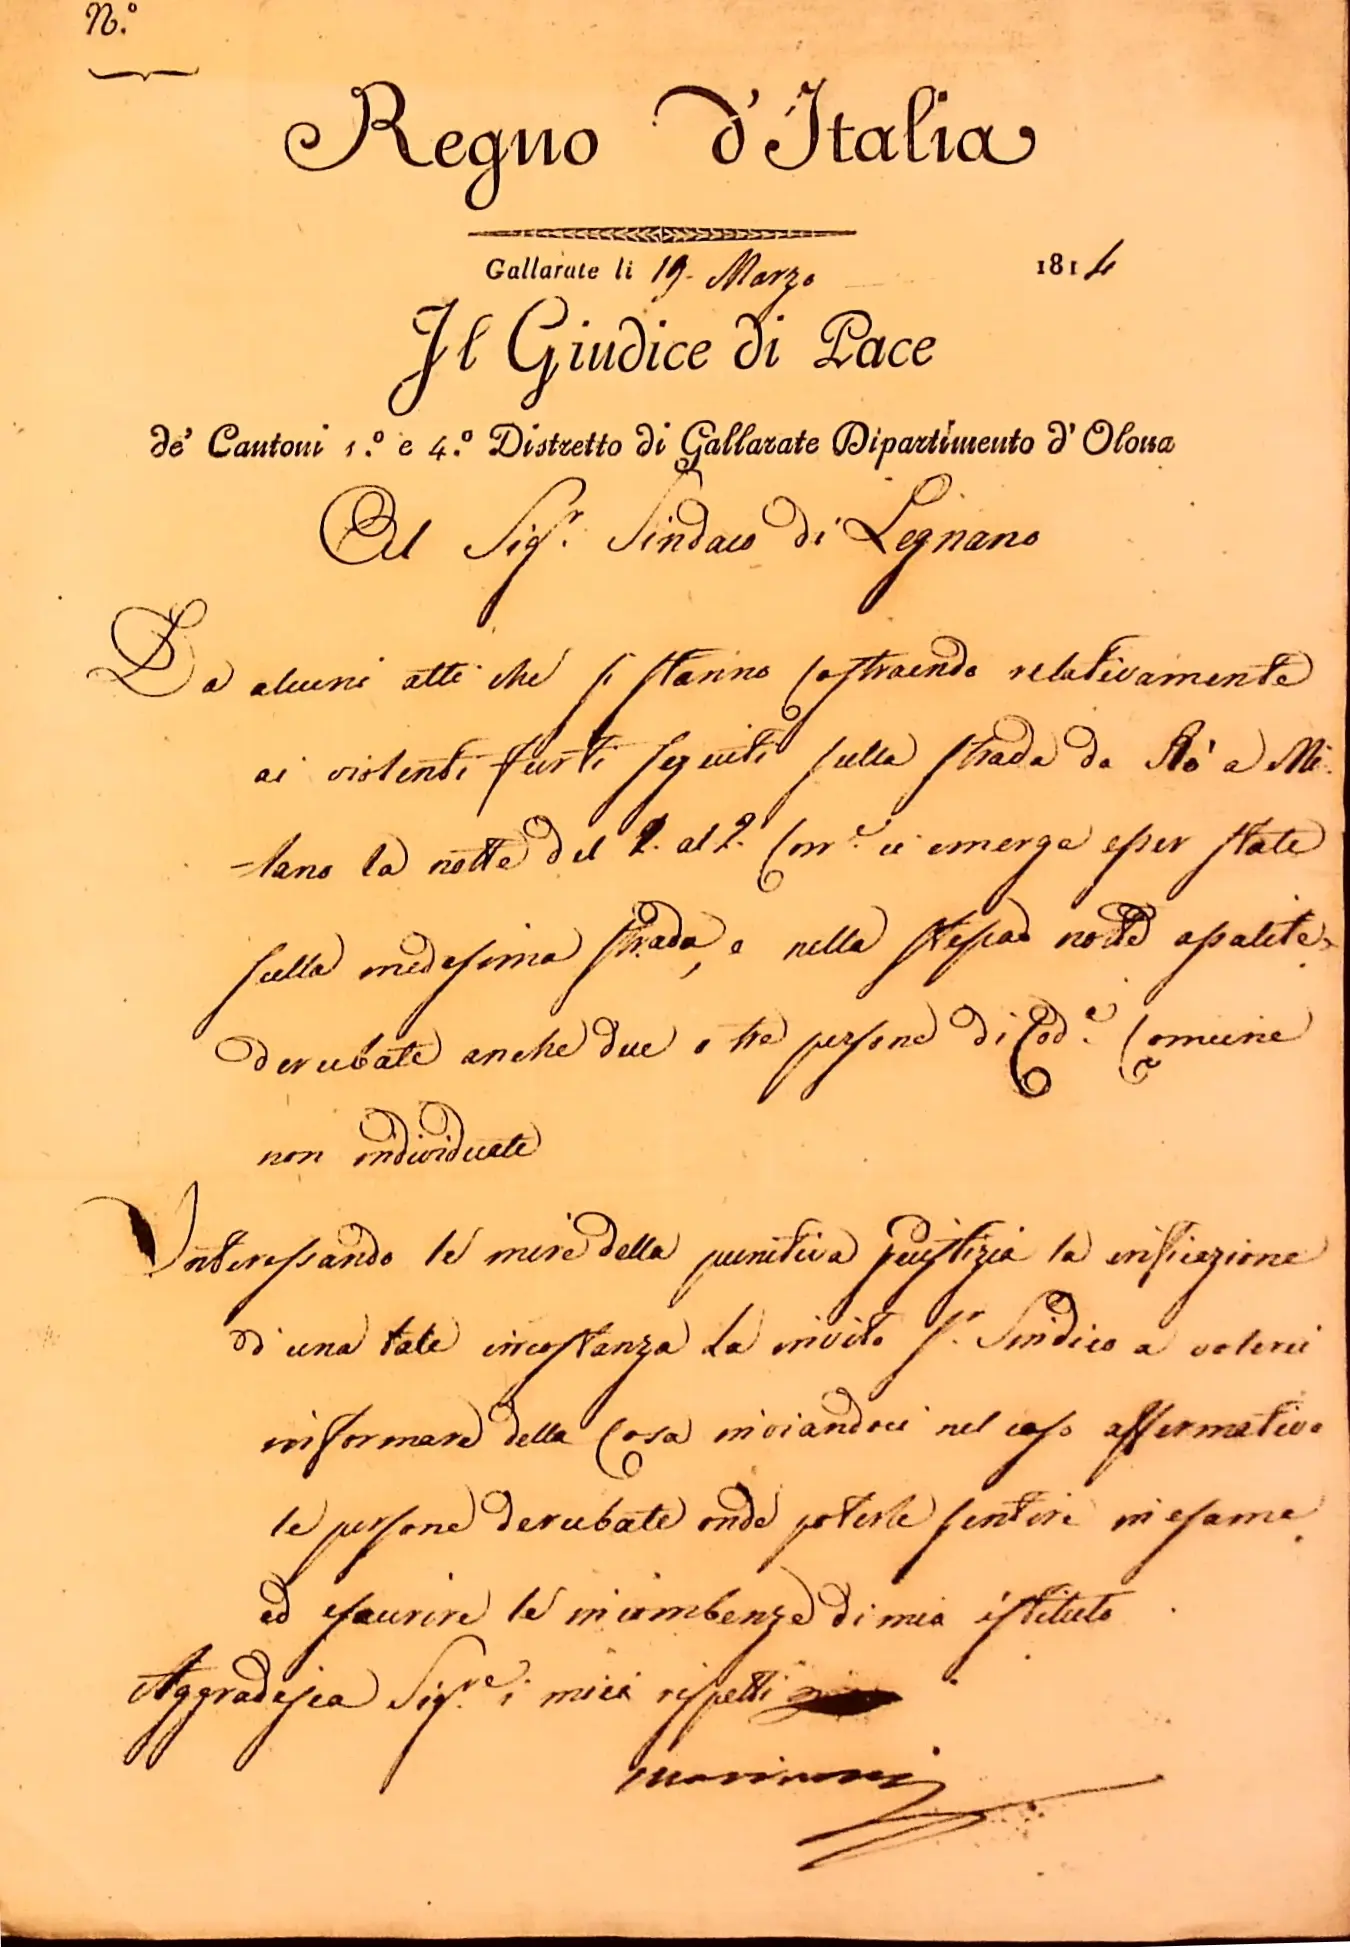 N.º
Regno d'Italia
Gallarate li 19. Marzo 1814
Il Giudice di Pace
de' Cantoni 1.º e 4.º Distretto di Gallarate Dipartimento d'Olona
Al Sig.r Sindaco di Legnano
Da alcuni atti che si stanno costruendo relativamente
ai violenti furti seguiti sulla strada da Rò a Mi-
-lano la notte del 1. al 2. Corr.e ci emerge esser state
sulla medesima strada, e nella stessa notte assalite, e
derubate anche due o tre persone di Cod.e Comune
non individuate
Interessando le mire della punitiva giustizia la verificazione
di una tale circostanza La invito S.r Sindico a volerci
informare della Cosa inviandoci nel caso affermativo
le persone derubate onde poterle sentire in esame
ed esaurire le incombenze di mio istituto
Aggradisca Sig.re i miei rispetti